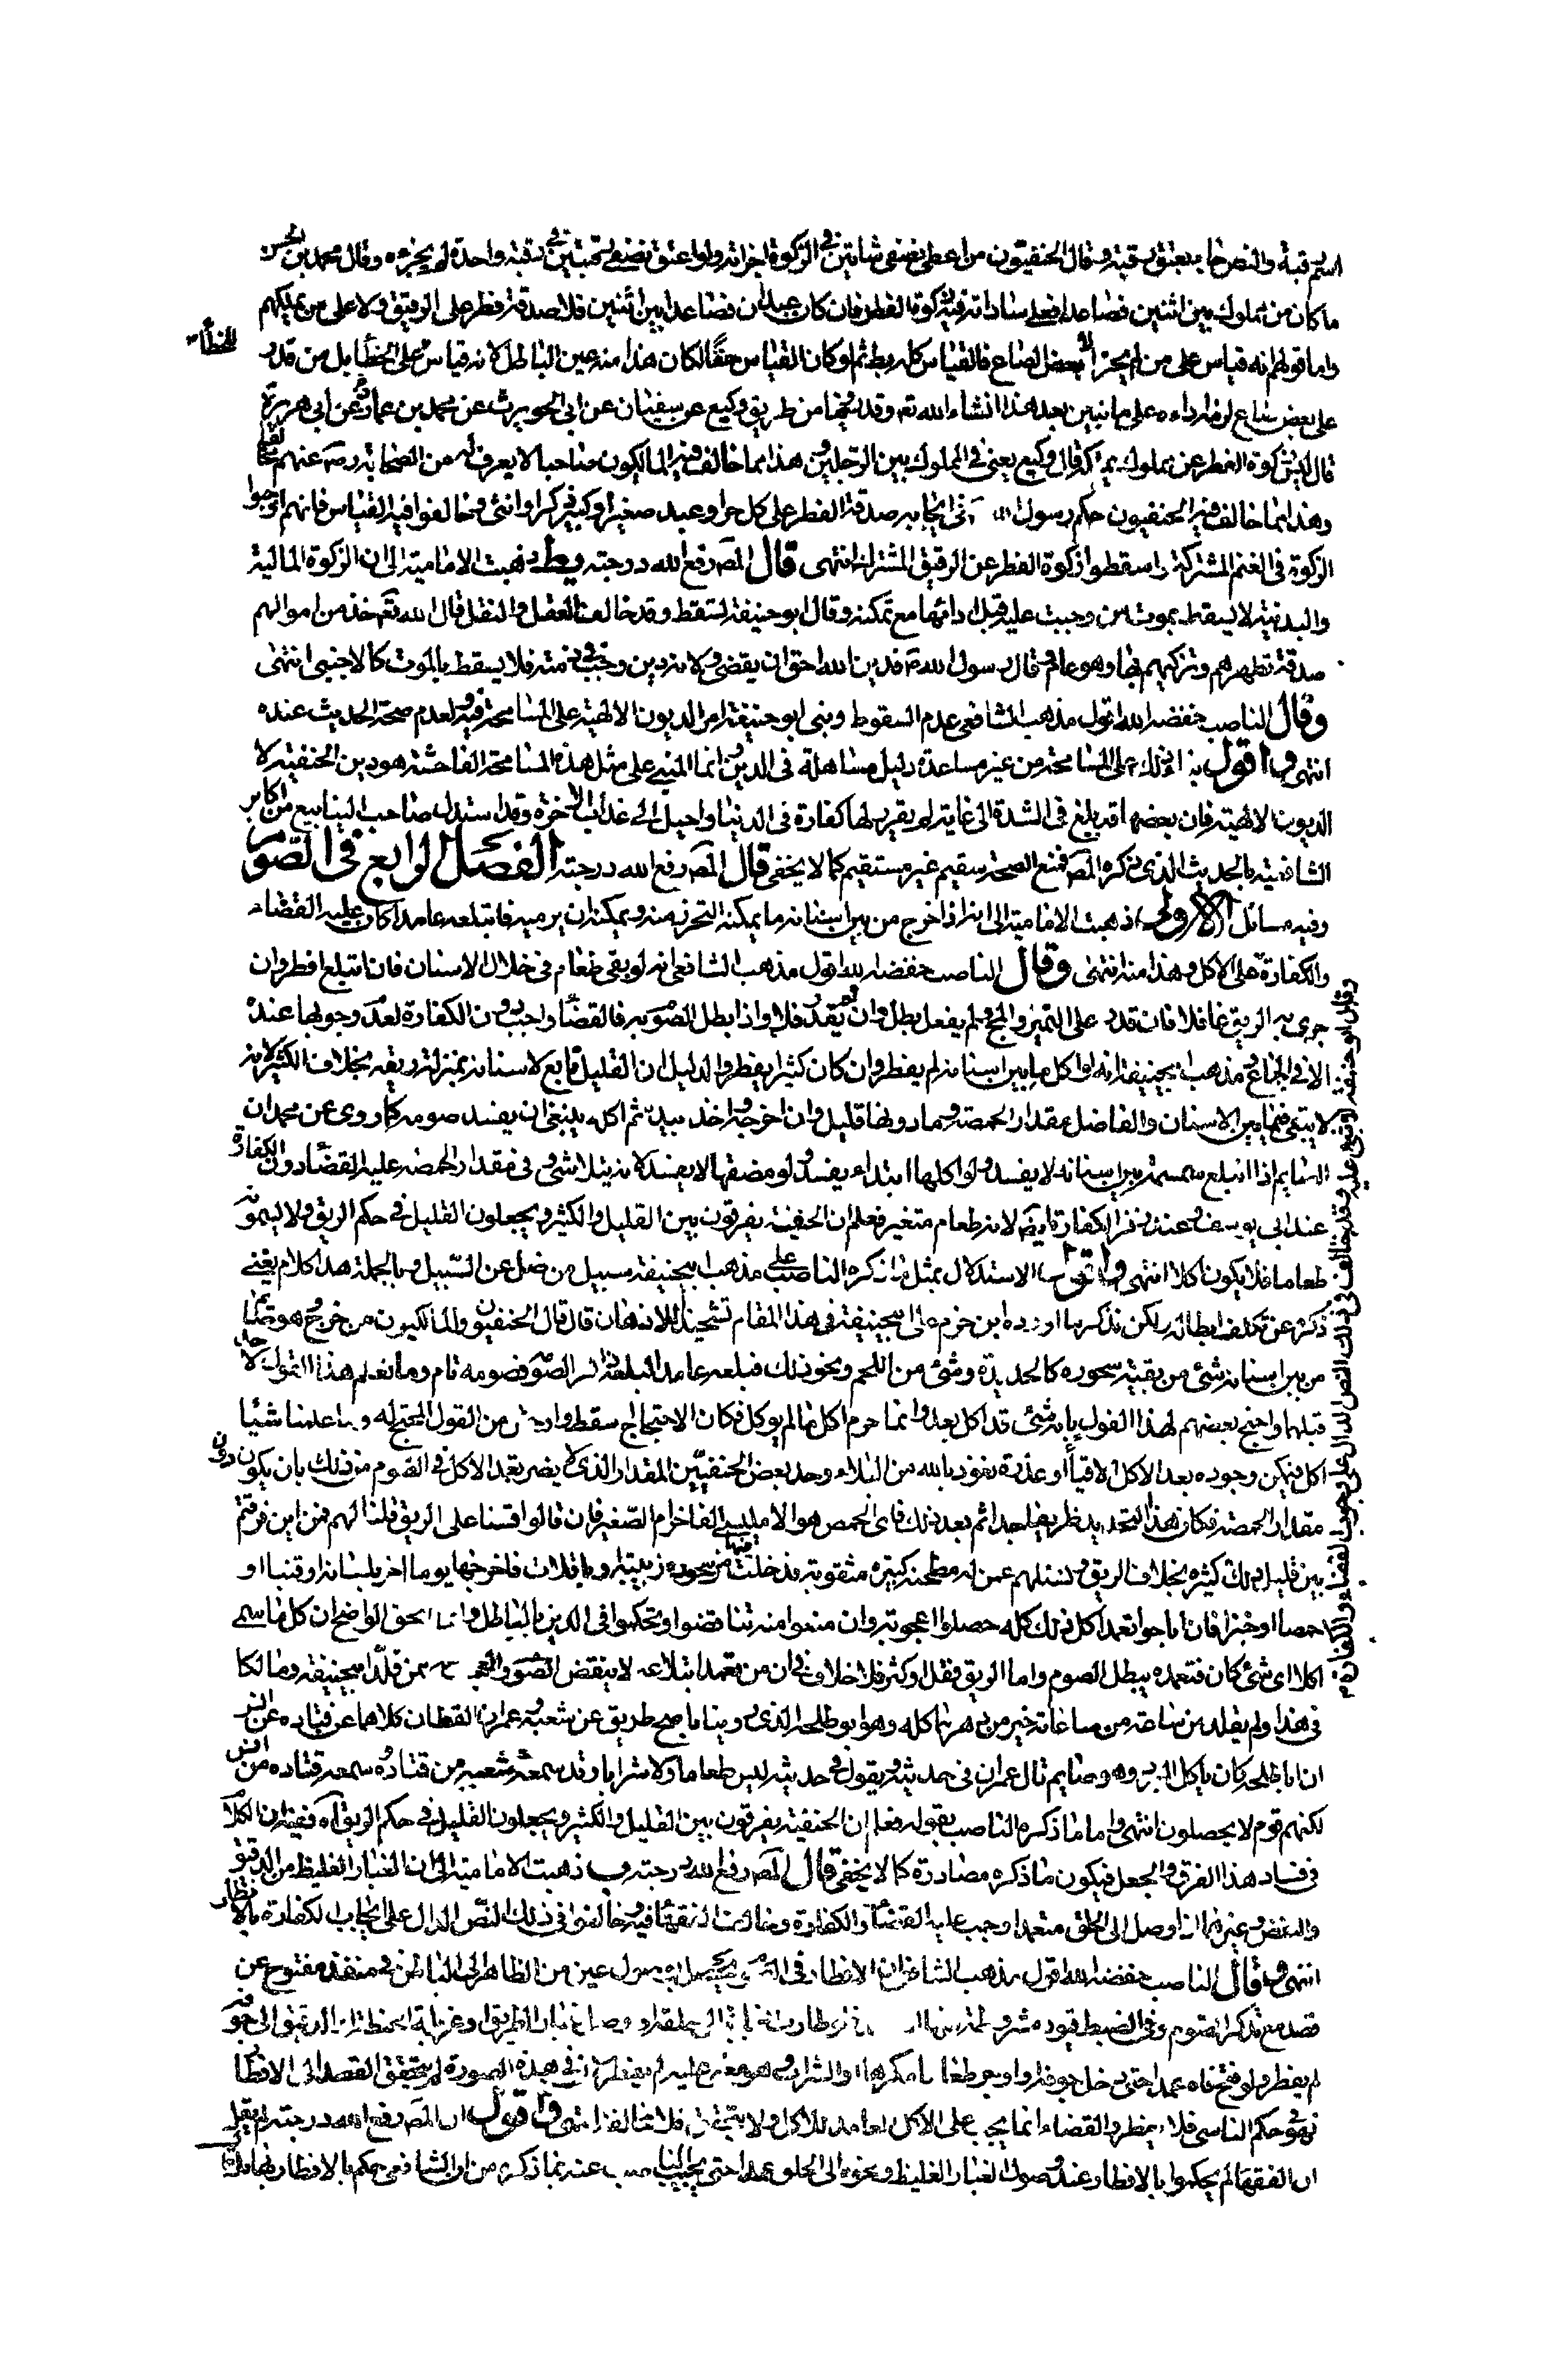 اسم رقبة والنص جاء بعتق رقبة وقال الحنفيون من اعطى نصفى شاتين فى الزكوة اجزأته ولو اعتق نصفى رقبتين فى رقبة واحدة لم يجزه وقال محمد بن الحسن
ما كان من مملوك بين اثنين فصاعدا فعلى ساداته فيه زكوة الفطر فان كان عبدان فصاعدا بين اثنين فلا صدقة فطر على الرقيق ولا على من يملكهم
واما قولهم انه قياس على من لم يجز الا بعض الصاع فالقياس كله بط ثم لو كان القياس حقا لكان هذا منه عين الباطل لانه قياس للخطأ على الخطأ بل من قدر
على بعض صاع لزمه اداءه على ما نبين بعد هذا انشاء الله تع وقد روينا من طريق وكيع عن سفيان عن ابى الحويرث عن محمد بن عمار عن ابى هريرة
قال ليس زكوة الفطر عن مملوك تملكه قال وكيع يعنى فى المملوك بين الرجلين وهذا مما خالف فيه المالكيون صاحبا لا يعرف له من الصحابة رضه عنهم مخالفا
وهذا مما خالف فيه الحنفيون حكم رسول الله فى ايجابه صدقة الفطر على كل حر او عبد صغير او كبير ذكر او انثى وخالفوا فيه القياس فانهم اوجبوا
الزكوة فى الغنم المشتركة واسقطوا زكوة الفطر عن الرقيق المشترك انتهى قال المصه رفع الله درجته يط ذهبت الامامية الى ان الزكوة المالية
والبدنية لا يسقط بموت من وجبت عليه قبل ادائها مع تمكنه وقال ابو حنيفة تسقط وقد خالف العقل والنقل قال الله تع خذ من اموالهم
صدقة تطهرهم وتزكيهم بها وهو عام وقال رسول الله ص فدين الله احق ان يقضى ولانه دين وجب فى ذمته فلا يسقط بالموت كالاجنبى انتهى
وقال الناصب خفضه الله اقول مذهب الشافعى عدم السقوط وبنى ابو حنيفة امر الديون الالهية على المسامحة فيه ولعدم صحة الحديث عنده
انتهى واقول بناء ذلك على المسامحة من غير مساعدة دليل مساهلة فى الدين وانما المبنى على مثل هذه المسامحة الفاحشة هو دين الحنفية لا
الديون الالهية فان بعضها قد بلغ فى الشدة الى غاية لم يقرر لها كفارة فى الدنيا واحيل الى عذاب الاخرة وقد استدل صاحب الينابيع من اكابر
الشافعية بالحديث الذى ذكره المصه فمنع الصحة سقيم غير مستقيم كما لا يخفى قال المصه رفع الله درجته الفصل الرابع فى الصوم
وفيه مسائل الاولى ذهبت الامامية الى انه اذا خرج من بين اسنانه ما يمكنه التحرز منه ويمكنه ان يرميه فابتلعه عامدا كان عليه القضاء
والكفارة على الاكل وهذا منه انتهى وقال الناصب خفضه الله اقول مذهب الشافعى انه لو بقى طعام فى خلال الاسنان فان ابتلع افطر وان
جرى به الريق غافلا فان قدر على التميز والمج ولم يفعل بطل وان لم يقدر فلا واذا بطل الصوم به فالقضاء واجب دون الكفارة لعدم وجوبها عنده
الا فى الجماع ومذهب ابى حنيفة انه لو اكل ما بين اسنانه لم يفطر وان كان كثيرا يفطر والدليل ان القليل تابع لاسنانه بمنزلة ريقه بخلاف الكثير لانه
لا يبقى فيما بين الاسنان والفاضل مقدار الحمصة وما دونها قليل وان اخرجه واخذ بيده ثم اكله ينبغى ان يفسد صومه كما روى عن محمد ان
الصايم اذا ابتلع سمسمة بين اسنانه لا يفسد ولو اكلها ابتداء يفسد ولو مضغها لا يفسد لانه يتلاشى وفى مقدار الحمصة عليه القضاء دون الكفارة
عند ابى يوسف وعند زفر الكفارة ايضا لانه طعام متغير فعلم ان الحنفية يفرقون بين القليل والكثير ويجعلون القليل فى حكم الريق ولا يسمونه
طعاما فلا يكون اكلا انتهى واقول الاستدلال بمثل ما ذكره الناصب على مذهب ابى حنيفة سبيل من ضل عن السبيل وبالجملة هذا كلام يغنى
ذكره عن تكلف ابطاله لكن نذكر ما اورده ابن حزم على ابى حنيفة فى هذا المقام تشحيذا للاذهان قال قال الحنفيون والمالكيون من خرج وهو صائم
من بين اسنانه شئ من بقية سحوره كالجديدة وشئ من اللحم ونحو ذلك فبلعه عامدا لبلعه ذاكر الصوم فصومه تام وما نعلم هذا القول لاحد
قبلهما واحتج بعضهم لهذا القول بانه شئ قد اكل بعد وانما حرم اكل ما لم يوكل فكان الاحتجاج اسقط واوحش من القول المحتج له وما علمنا شيئا
اكل فيمكن وجوده بعد الاكل الا قيأ او عذرة نعوذ بالله من البلاء وحد بعض الحنفيين المقدار الذى لا يضر تعمد الاكل فى الصوم من ذلك بان يكون دون
مقدار الحمصة فكان هذا التحديد طريفا جدا ثم بعد ذلك فاى الحمص هو الامليسى الفاخر ام الصغير فان قالوا قسنا على الريق قلنا لهم فمن اين فرقتم
بين قليل ذلك كثيره بخلاف الريق ونسئلهم عمن له مطحنة كبيرة مثقوبة فدخلت فيها من سحوره زبيبة او باقلات فاخرجها يوما اخر بلسانه او قنبا او
حمصا او خبزا فان اباحوا تعمد اكل ذلك كله حصلوا اعجوبة وان منعوا منه تناقضوا وتحكموا فى الدين بالباطل وانما الحق الواضح ان كل ما سمى
اكلا اى شئ كان فتعمده يبطل الصوم واما الريق فقل او كثر فلا خلاف فى ان من تعمد ابتلاعه لا ينقض الصوم والعجب ممن قلد ابا حنيفة ومالكا
فى هذا ولم يقلد من ساعة من ساعاته خير من دهرهما كله وهو ابو طلحة الذى روينا باصح طريق عن شعبة وعمران القطان كلاهما عن قتاده عن انس
ان ابا طلحة كان ياكل البرد وهو صايم قال عمران فى حديثه ويقول فى حديثه ليس طعاما ولا شرابا وقد سمعه شعبة من قتاده وسمعه قتاده من انس
لكنهم قوم لا يحصلون انتهى واما ما ذكره الناصب بقوله فعلم ان الحنفية يفرقون بين القليل والكثير ويجعلون القليل فى حكم الريق اه ففيه ان الكلام
فى فساد هذا الفرق والجعل فيكون ما ذكره مصادرة كما لا يخفى قال المصه رفع الله درجته ب ذهبت الامامية الى ان الغبار الغليظ من الدقيق
والنفض وغيرهما اذا وصل الى الحلق متعمدا وجب عليه القضاء والكفارة وخالفت الفقهاء فيه وخالفوا فى ذلك النص الدال على ايجاب الكفارة بالافطار
انتهى وقال الناصب خفضه الله اقول مذهب الشافعى ان الافطار فى الصوم يحصل بوصول عين من الظاهر الى الباطن فى منفذ مفتوح عن
قصد مع تذكر الصوم وفى الضبط قيوده شروط فلو طارت ذبابة الى حلقه او وصل غبار الطريق او غربلة الحنطة او الدقيق الى جوفه
لم يفطر ولو فتح فاه عمدا حتى دخل جوفه ولو اوجر طعاما مكرها او الشراب وهو مغمى عليه لم يفطر ففى هذه الصورة لم يتحقق القصد الى الافطار
فهو فى حكم الناسى فلا يفطر والقضاء انما يجب على الاكل العامد للاكل ولا يتحقق فلا مخالفة انتهى واقول ان المصه رفع الله درجته لم يقل
ان الفقهاء لم يحكموا بالافطار عند وصول الغبار الغليظ ونحوه الى الحلق عمدا حتى يجيب الناصب عنه بما ذكره من ان الشافعى حكم بالافطار
وقال ابو حنيفة لا شئ عليه وقد خالف فى ذلك النص الدال على وجوب القضاء والكفارة